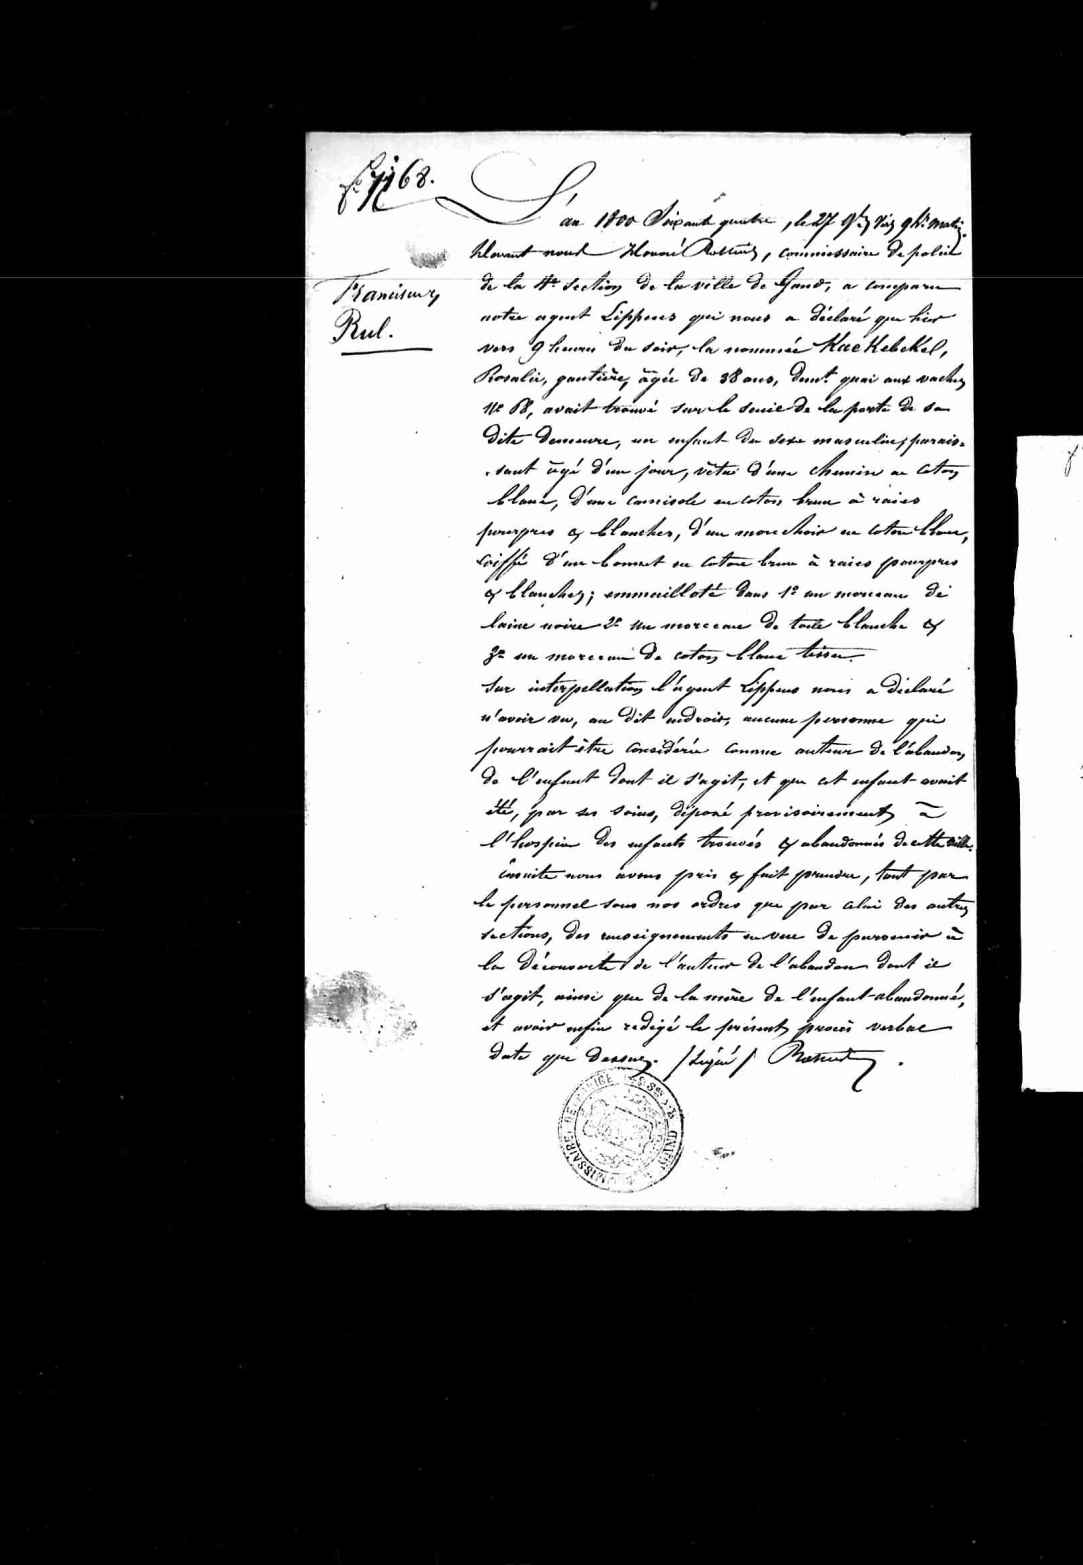 7168.
L'an 1800 Soixante quatre, le 27 9bre vers 9 hrs matin
Devant nous Honoré, commissaire de police
de la 4e section de la ville de Gand, a comparu
notre agent Lippens qui nous a déclaré que hier
Franciscus
vers 9 heures du soir, la nommée Kackebekel,
Rul.
Rosalie, gantière, âgée de 38 ans, demt. quai aux vaches
No 68, avait trouvé sur le seuil de la porte de sa
dite demeure, un enfant du sexe masculin, parais-
-sant âgé d'un jour, vêtu d'une chemise en coton
blanc, d'une camisole en coton brun à raies
pourpres & blanches, d'un mouchoir en coton blanc,
coiffé d'un bonnet en coton brun à raies pourpres
& blanches; emmailloté dans 1o un morceau de
laine noire 2o un morceau de toile blanche &
3o un morceau de coton blanc tissu.
Sur interpellation l'agent Lippens nous a déclaré
n'avoir vu, au dit endroit, aucune personne qui
pourrait être considérée comme auteur de l'abandon
de l'enfant dont il s'agit, et que cet enfant avait
été, par ses soins, déposé provisoirement à
l'hospice des enfants trouvés & abandonnés de cette ville.
Ensuite nous avons pris & fait prendre, tant par
le personnel sous nos ordres que par celui des autres
sections, des renseignements en vue de parvenir à
la découverte de l'auteur de l'abandon dont il
s'agit, ainsi que de la mère de l'enfant abandonné,
et avoir enfin redigé le présent procès verbal
date que dessus. /Signé/
COMMISSAIRE DE POLICE GAND